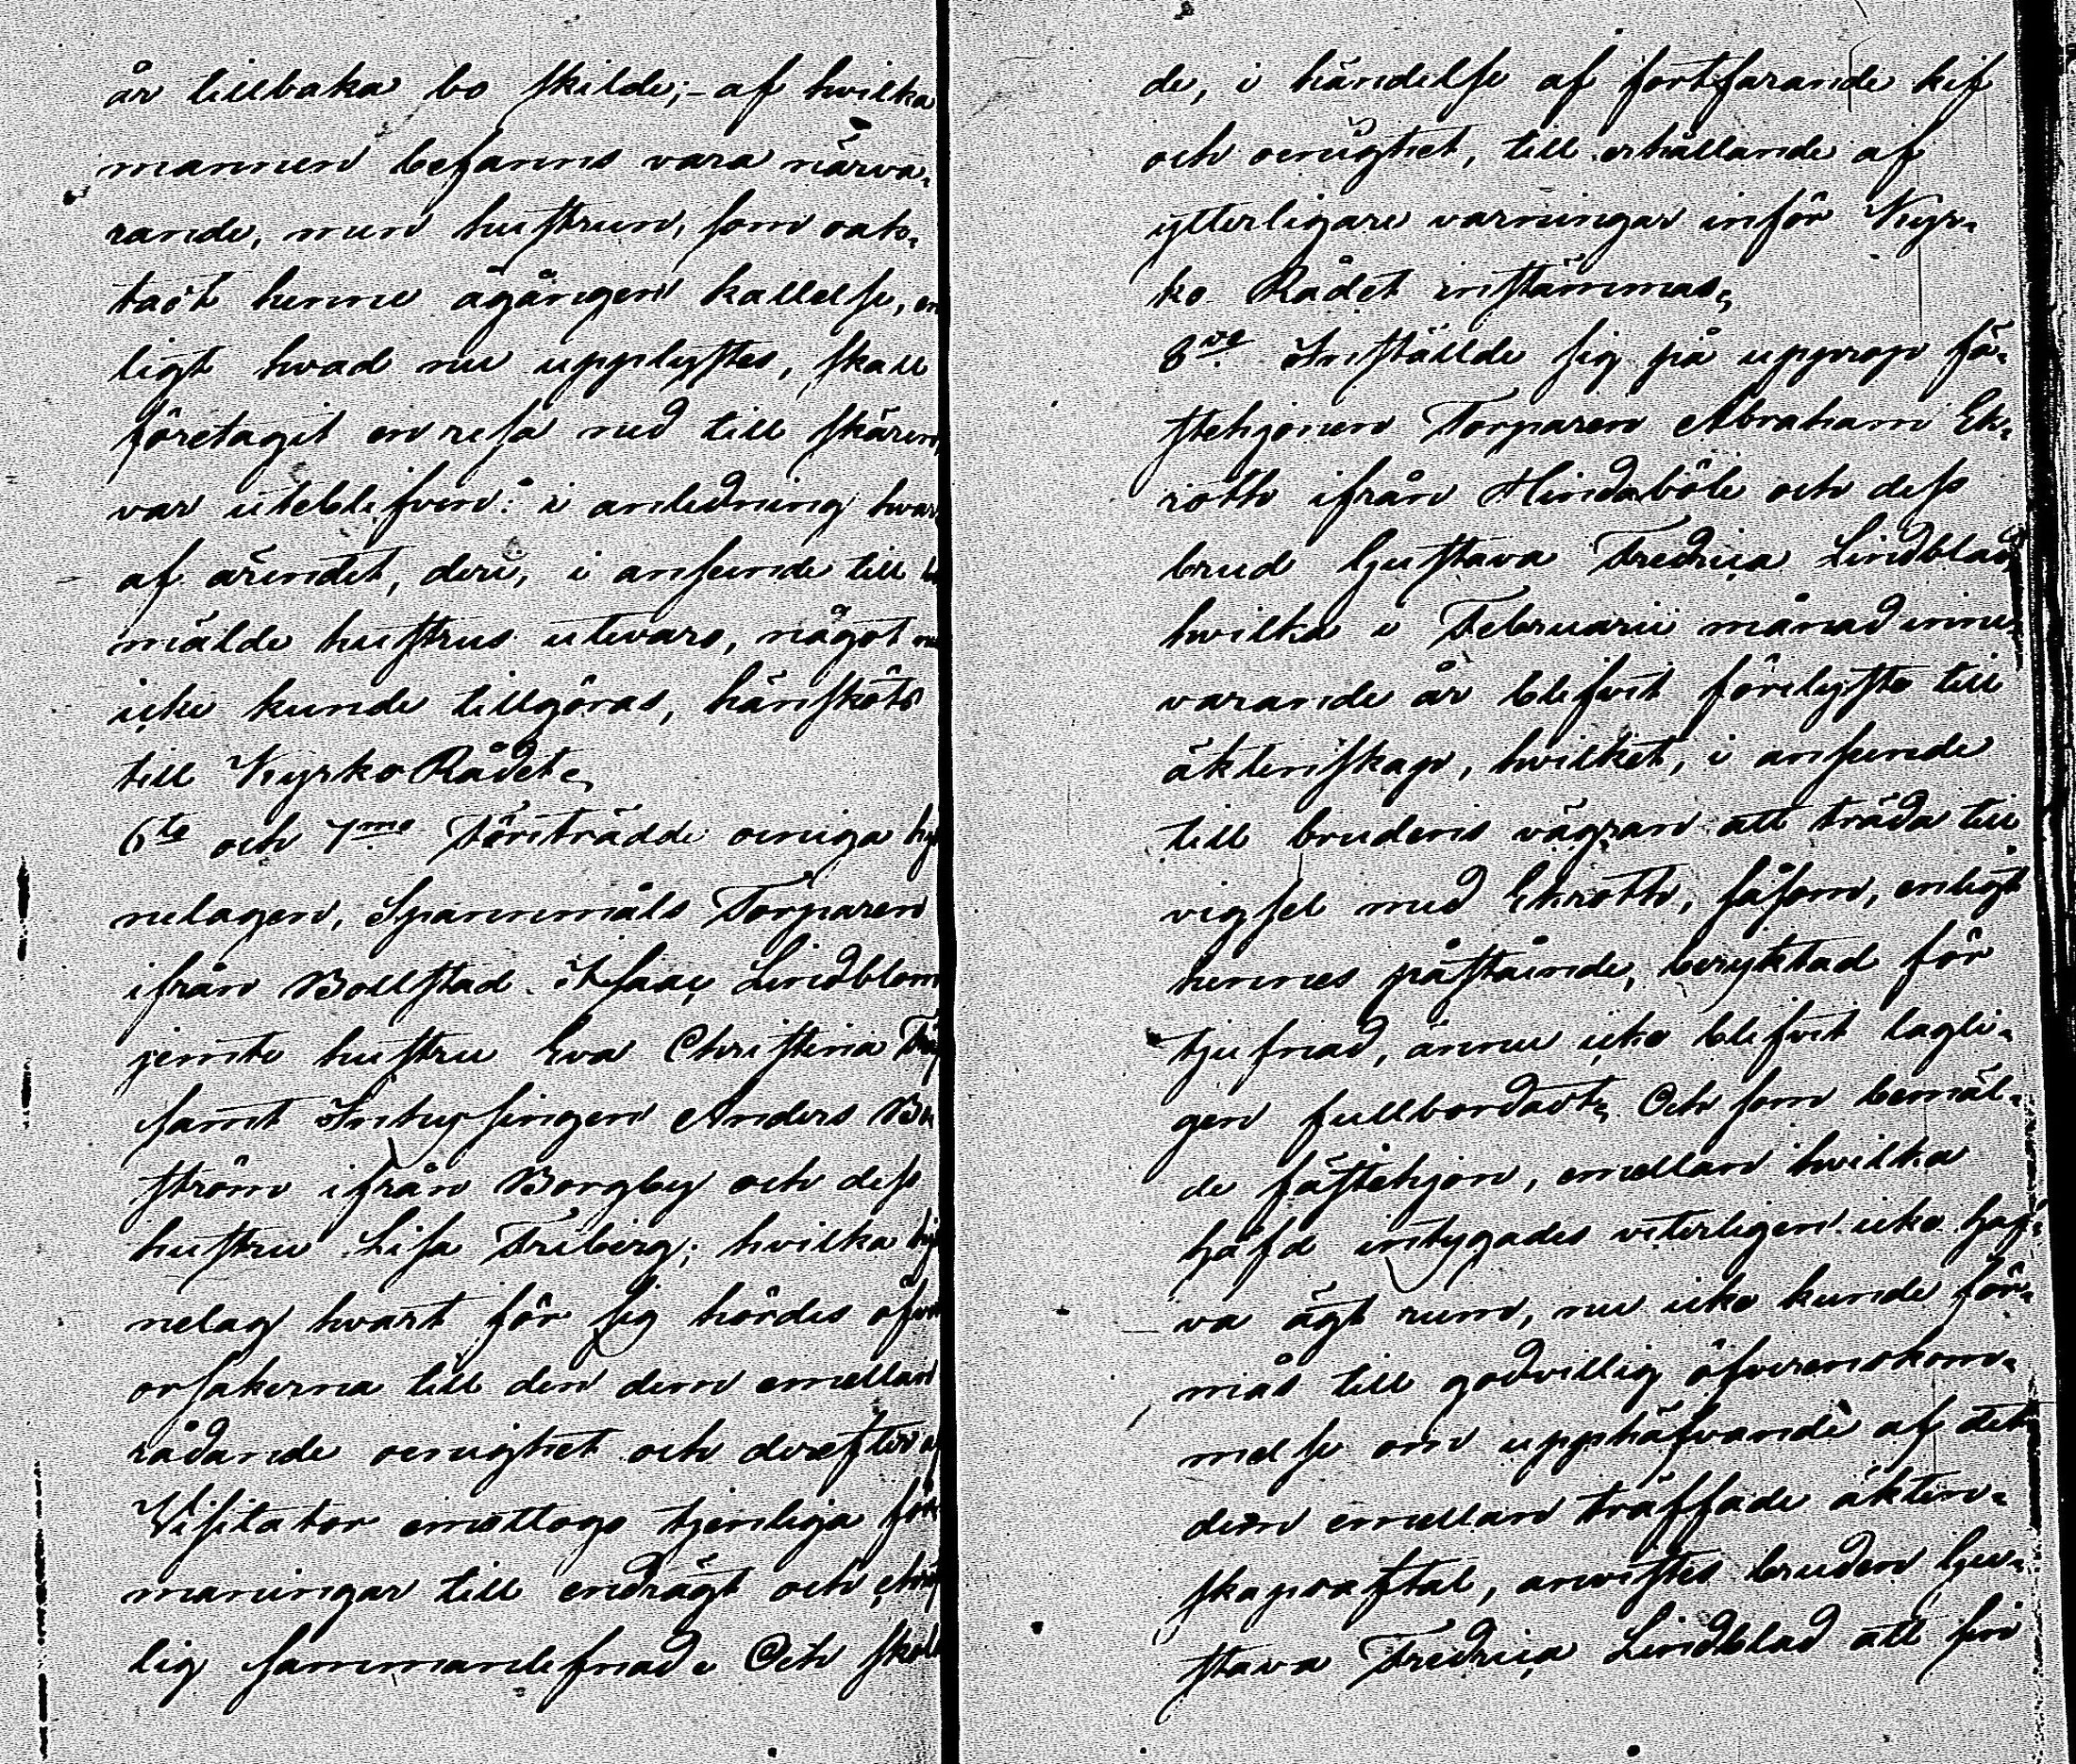 år tillbaka bo skilde;- af hvilka
mannen befanns vara närva-
rande, men hustrun, som oak-
tadt henne ågången kallelse, en
ligt hvad nu upplystes, skall
företagit en resa ned till skären,
var utebliven: i anledning hvar
af ärendet, deri, i anseende till
mälde hustrus utevaro, något
icke kunde tillgöras, hänsköts
till KyrkoRådet.
6te och 7me Företrädde oeniga hjo
nelagen, Spannmåls Torparen
ifrån Bollstad Isaac Lindblom
jemte hustru Eva Christina
samt Inhysingen Anders
ström ifrån Borgby och dess
hustru Lisa Friberg; hvilka hjo
nelag hvart för sig hördes öfver
orsakerna till den dem emellan
rådande oenighet och derefter
Visitator emottogo tjenliga för
maningar till endrägt och
lig sammanlefnad. Och skole
de, i händelse af fortfarande kif
och oenighet, till erhållande af
ytterligare varningar inför Kyr-
ko Rådet instämmas.
8de Inställde sig på upprop fä-
stehjonen Torparen Abraham Ek-
roth ifrån Hindaböle och dess
brud Gustava Fredrica Lindblad,
hvilka i Februarii månad inne-
varande år blifvit förelyste till
äktenskap, hvilket, i anseende
till brudens vägran att träda till
vigsel med Ekroth, såsom, enligt
hennes påstående, beryktad för
tjufnad, ännu icke blifvit lagli-
gen fullbordadt. Och som bemäl-
de fästehjon, emellan hvilka
häfd intygades veterligen icke haf-
va ägt rum, nu icke kunde för-
mås till godvillig öfverenskom-
melse om upphäfvande af det
dem emellan träffade äkten-
skapsaftal, anvistes bruden Gu-
stava Fredrica Lindblad att sin